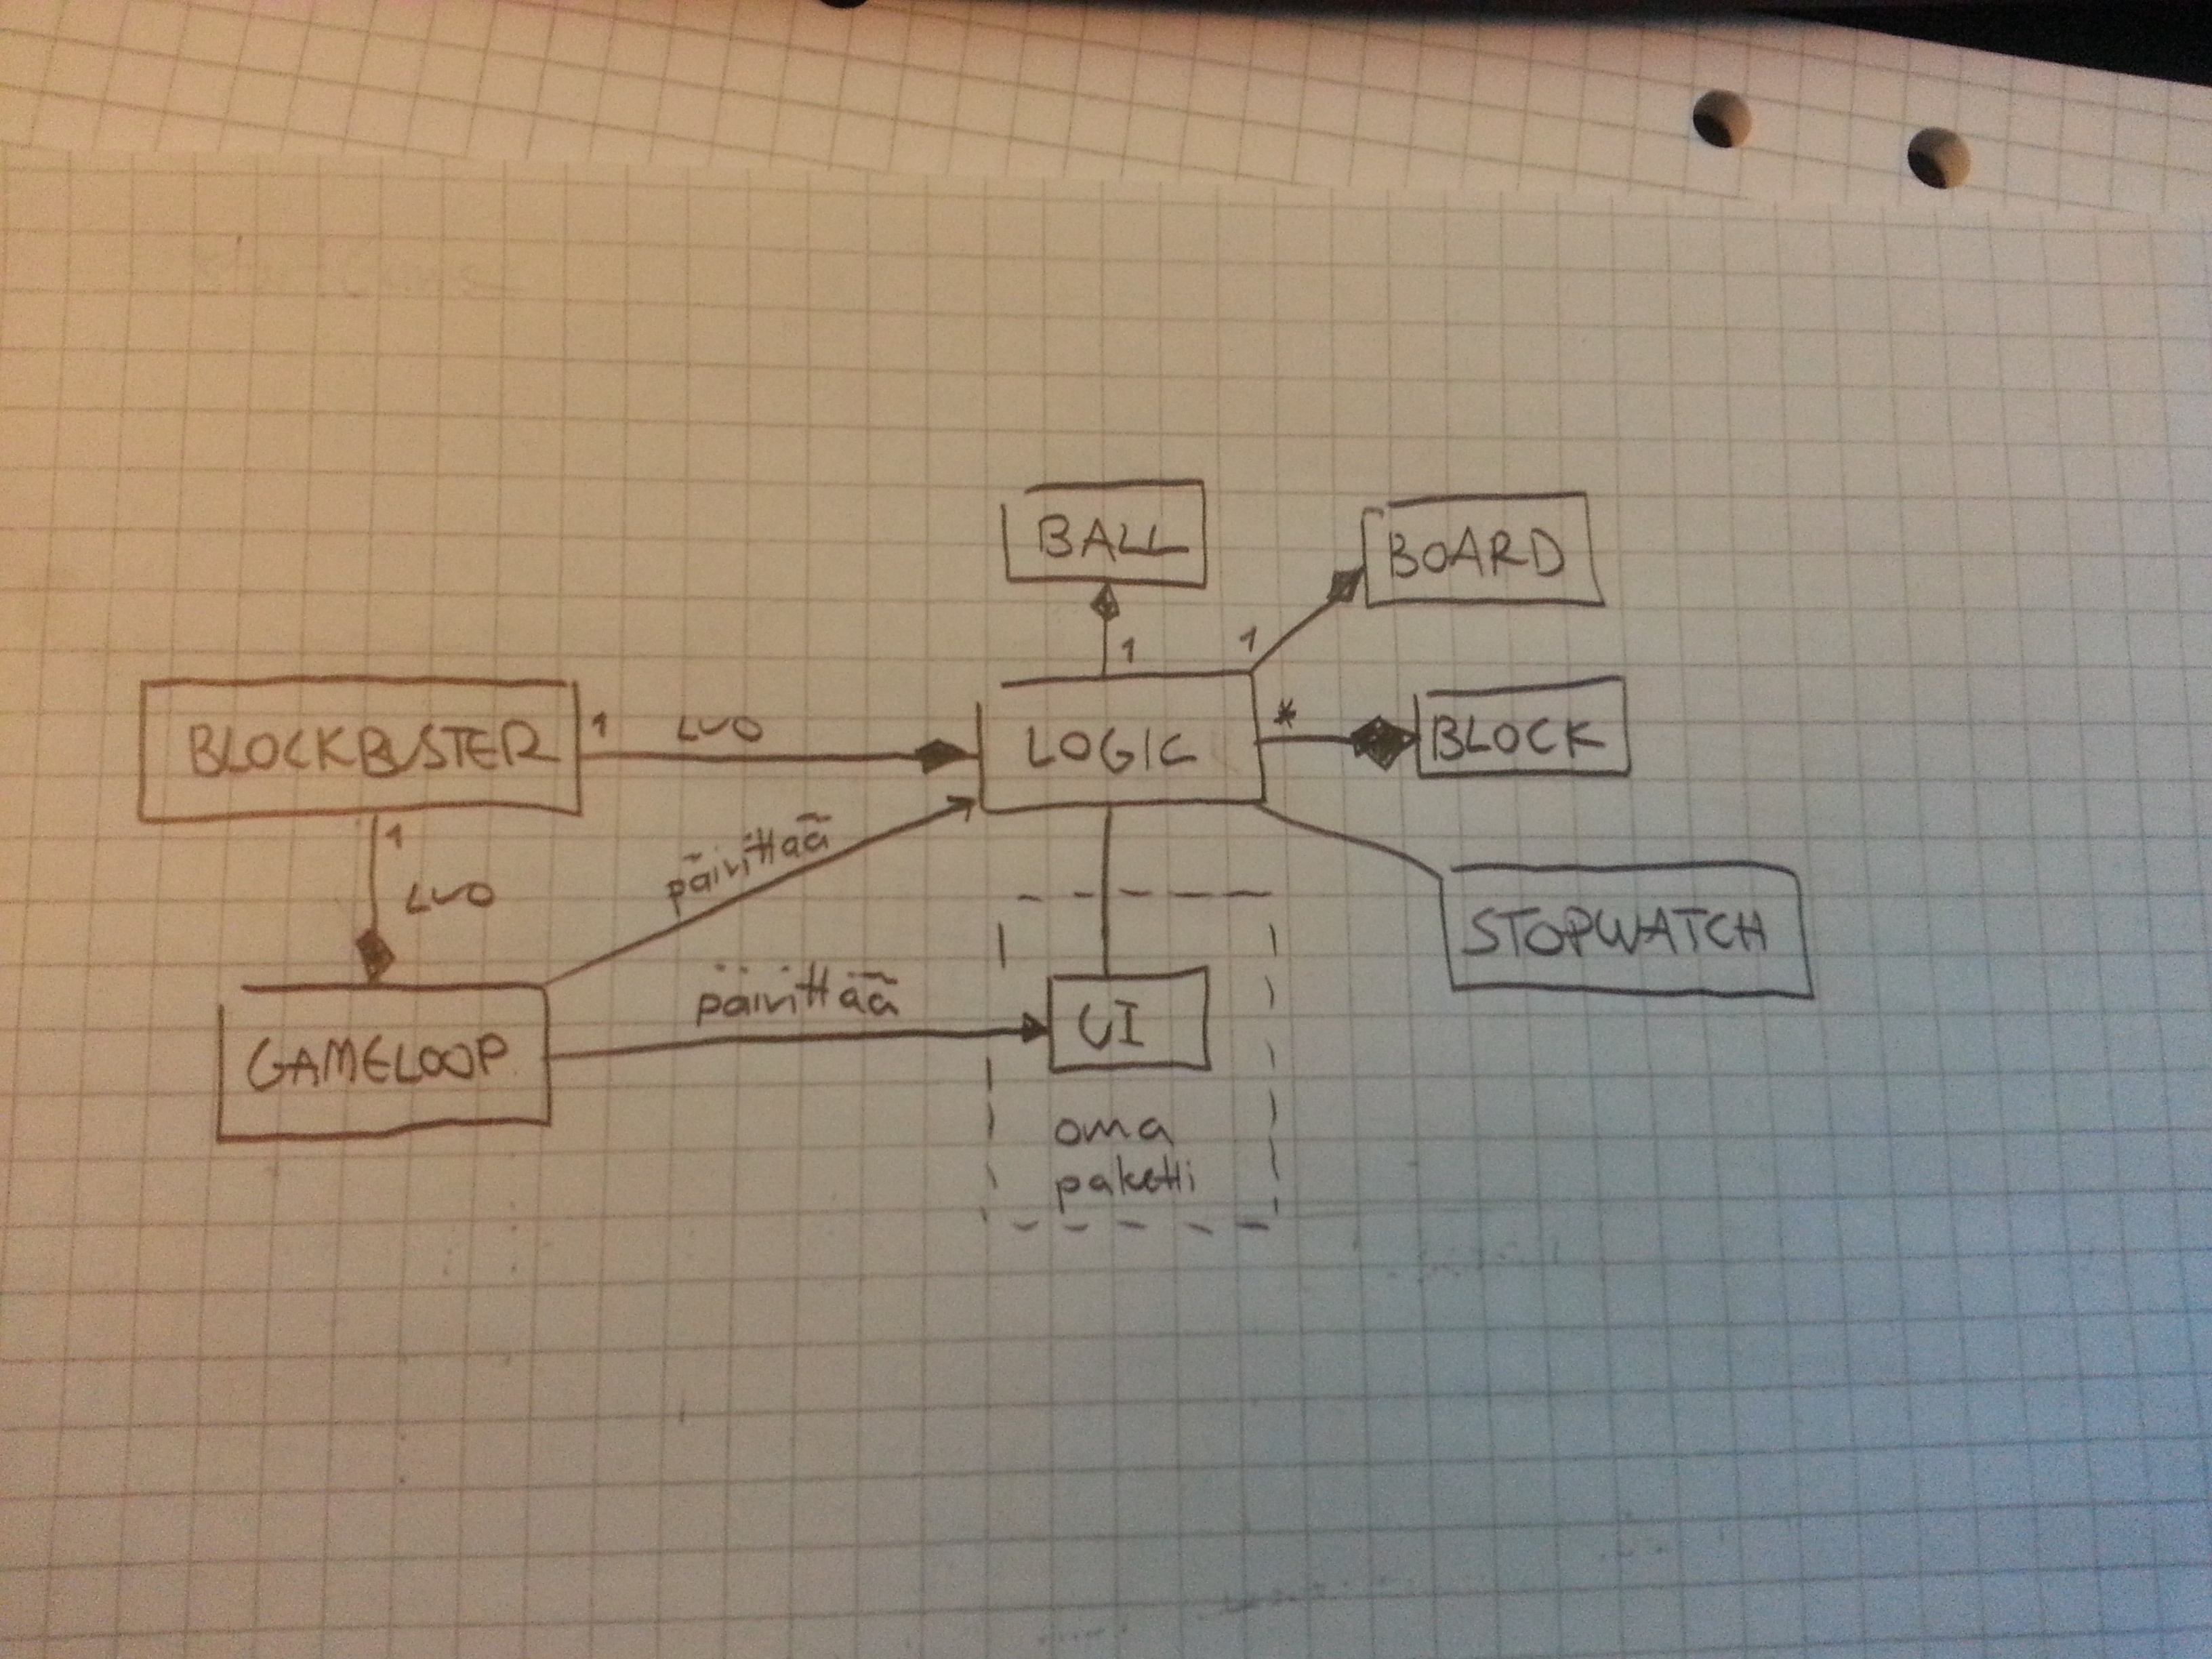 BALL
BOARD
1
1
BLOCKBUSTER
1
LUO
LOGIC
*
BLOCK
1
LUO
päivittää
STOPWATCH
GAMELOOP
päivittää
UI
oma
paketti